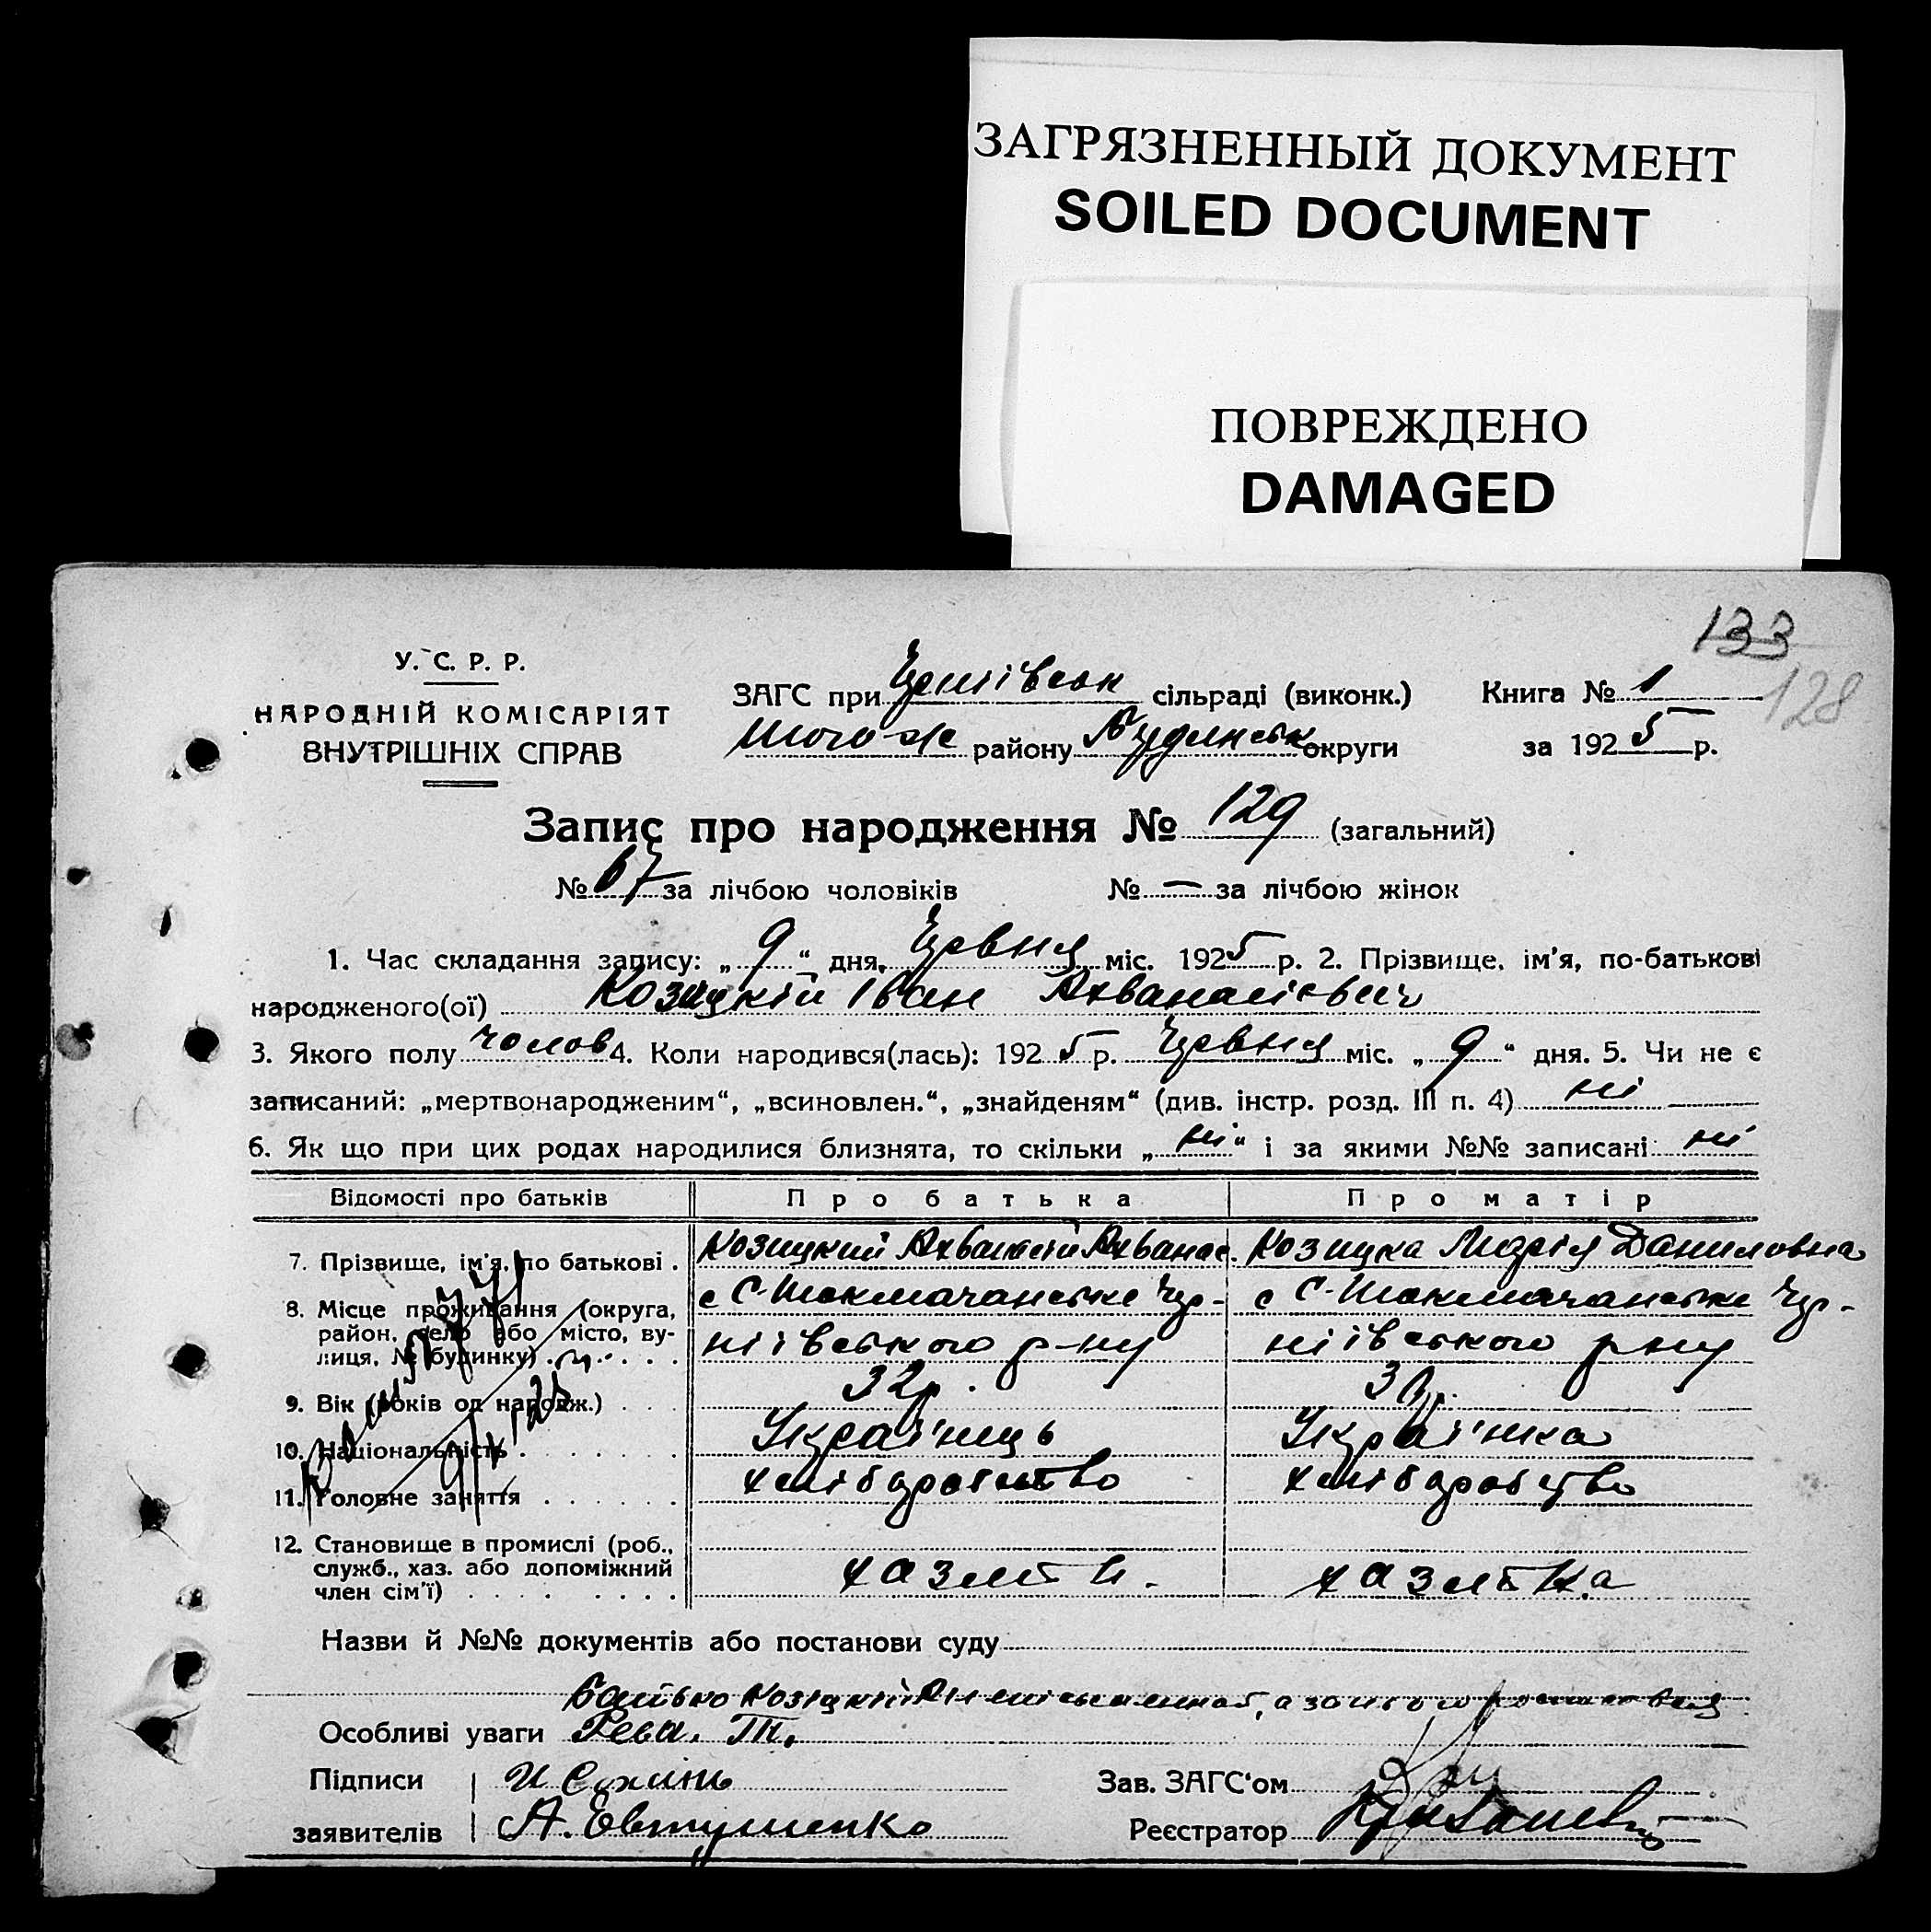 ЗАГРЯЗНЕННЫЙ ДОКУМЕНТ
SOILED DOCUMENT
ПОВРЕЖДЕНО
DAMAGED
133
128
У. С. Р. Р.
НАРОДНІЙ КОМІСАРІЯТ
ВНУТРІШНІХ СПРАВ
ЗАГС при сільраді (виконк.) Книга № 1
того ж району округи за 1925 р.
Запис про народження № 129 (загальний)
№ 67 за лічбою чоловіків № — за лічбою жінок
1. Час складання запису: „ 9 “ дня червня міс. 1925 р. 2. Прізвище, ім'я, по-батькові
народженого(ої) Козицкій Іван
3. Якого полу чолов 4. Коли народився(лась): 1925 р. червня міс. „ 9 “ дня. 5. Чи не є
записаний: „мертвонародженим“, „всиновлен.“, „знайденям“ (див. інстр. розд. III п. 4) ні
6. Як що при цих родах народилися близнята, то скільки „ ні “ і за якими №№ записані ні
Відомості про батьків Про батька Про матір
7. Прізвище, ім'я, по батькові . Козицкий Козицка Марія Даниловна
8. Місце проживання (округа,
район, село або місто, ву-
лиця, № будинку) . . . . .
ніівського р-ну ніівського р-ну
9. Вік (років од народж.) . . . 32 р.
10. Національність . . . . . . Українць Українка
11. Головне заняття . . . . . . хлібаробство хлібаробство
12. Становище в промислі (роб.,
служб., хаз. або допоміжний
член сім'ї) . . . . . . . . хазяін. хазяйка
Назви й №№ документів або постанови суду
Батько Козіцкій
Особливі уваги Рева.
Підписи Зав. ЗАГС'ом
заявителів А. Евтушенко Реєстратор